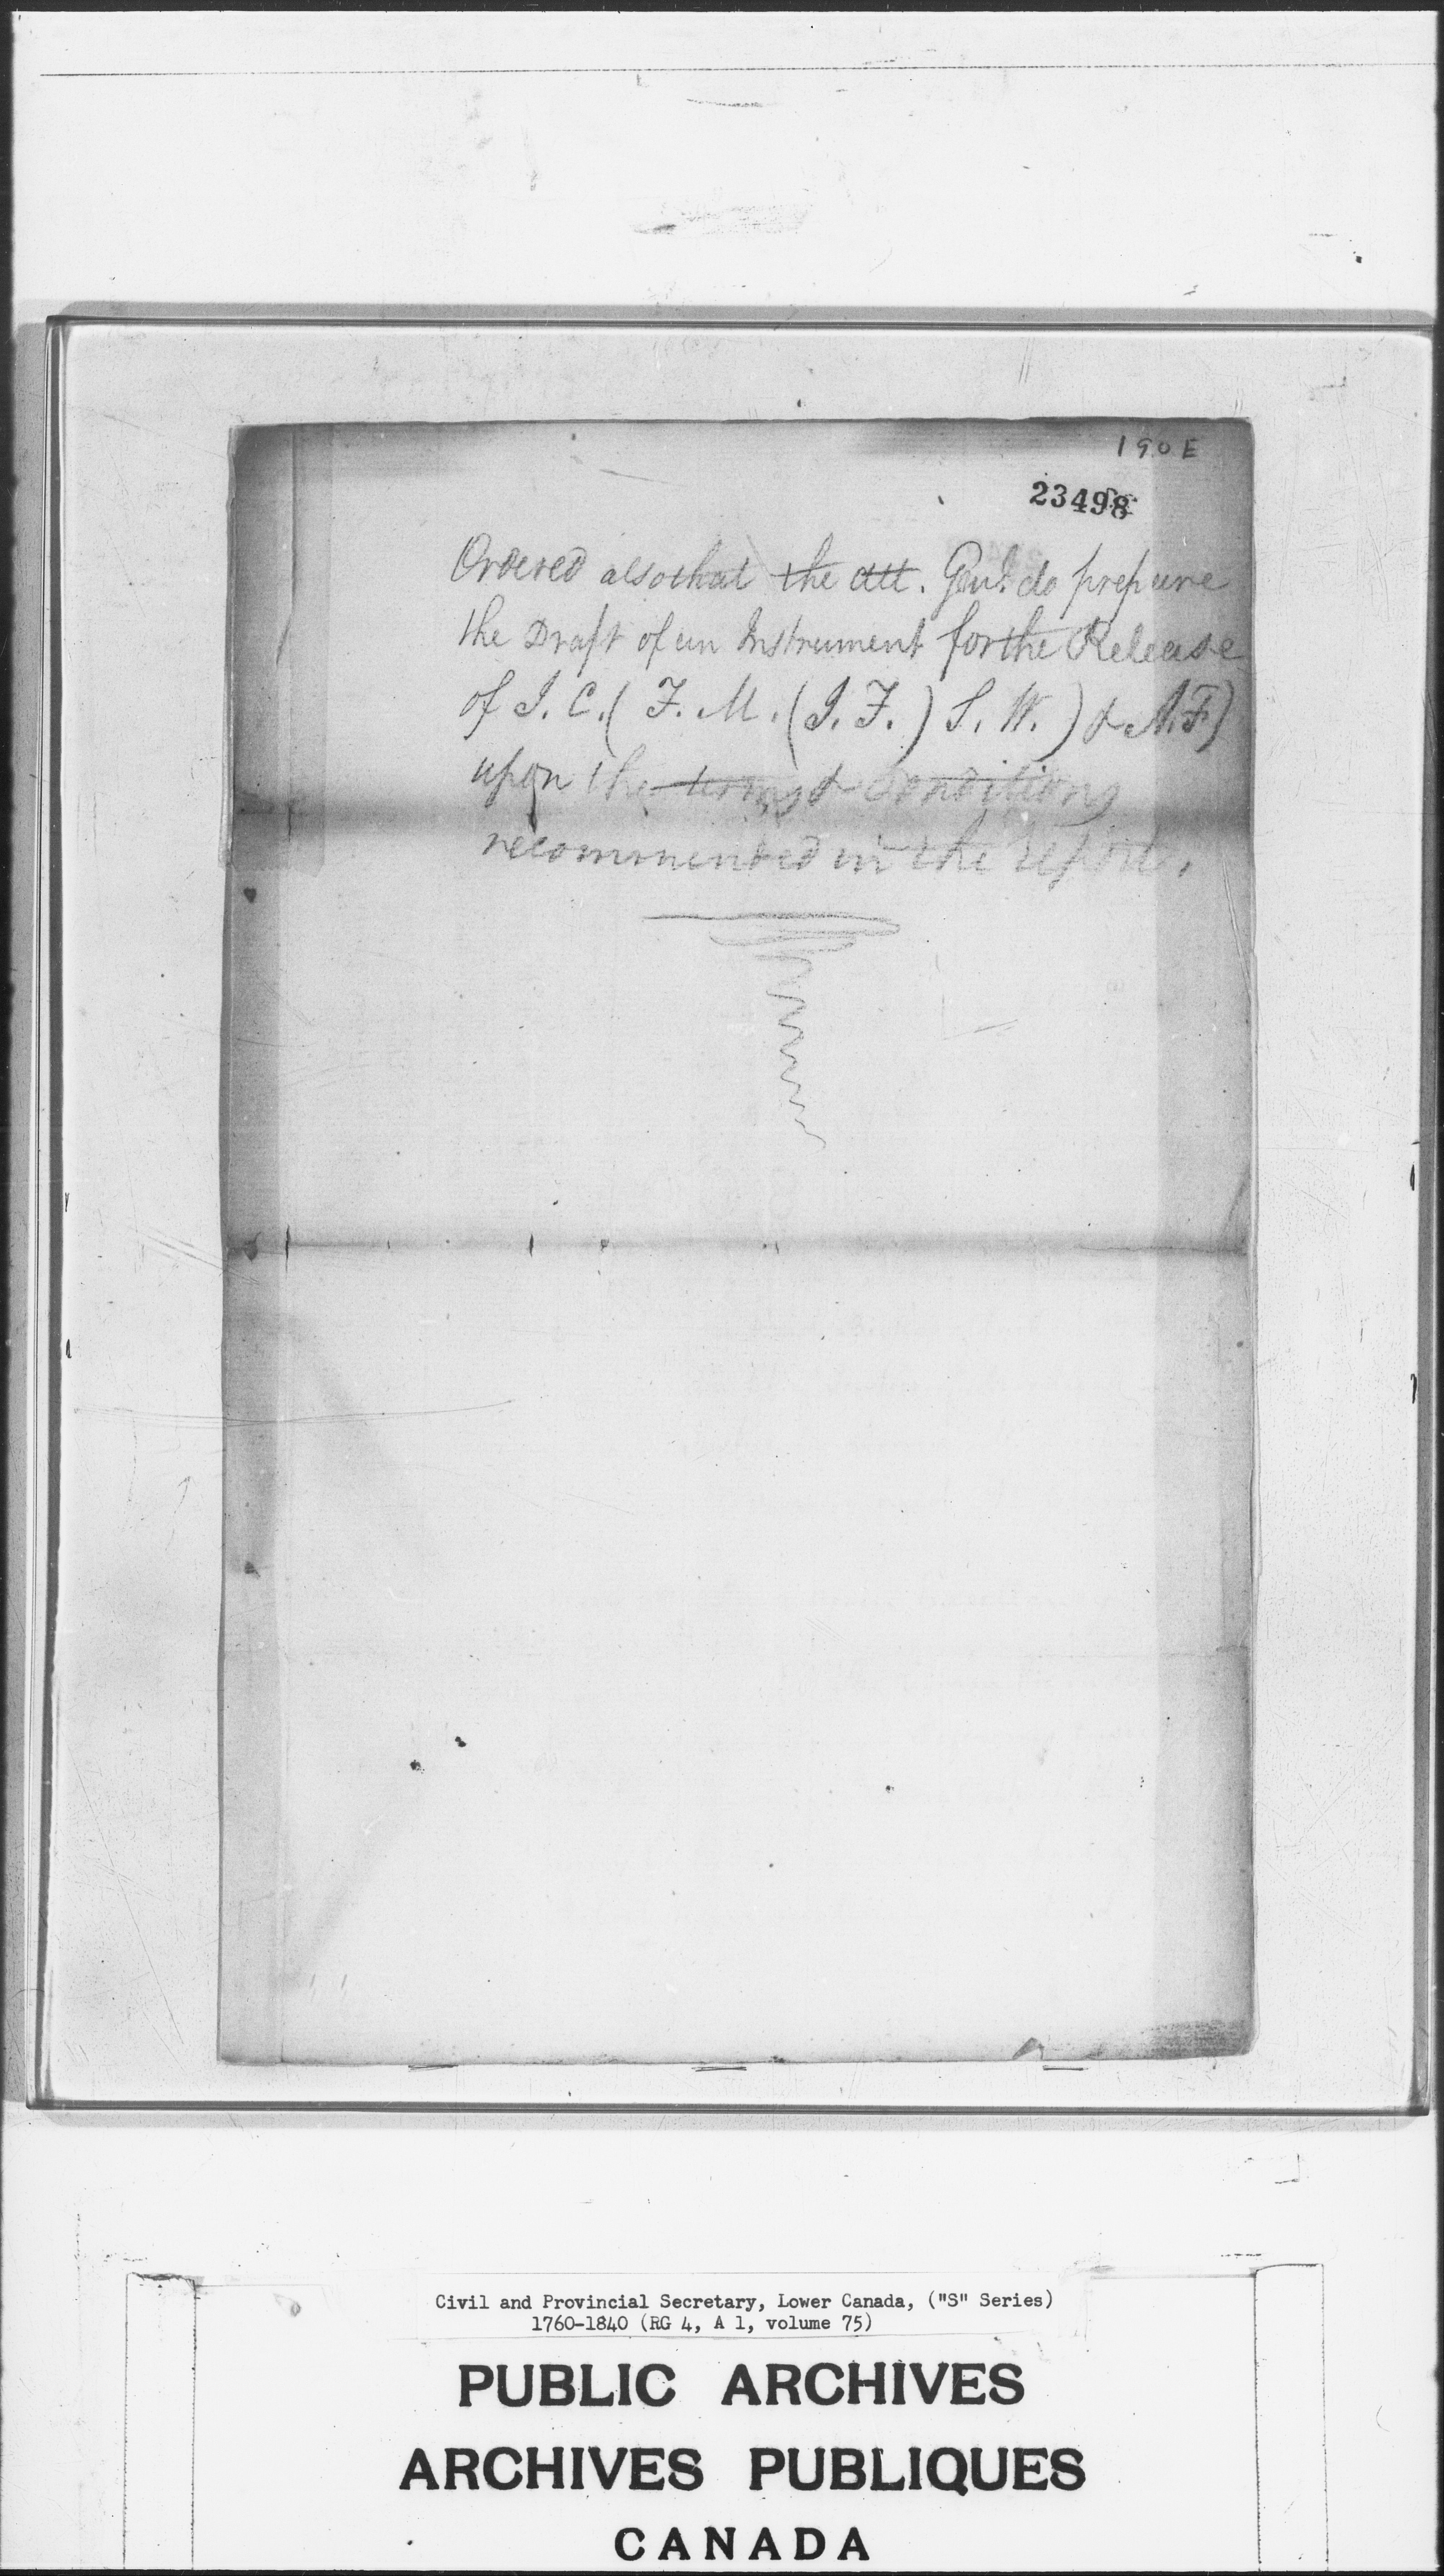 190E
23498
Ordered also that the Att. Genl. do prepare
the Draft of an Instrument for the Release
of J. C. ( F. M. ( J. F. ) S. W. ) & A. F )
upon the terms & Conditions
recommended in the report.
Civil and Provincial Secretary, Lower Canada, ("S" Series)
1760-1840 (RG 4, A 1, volume 75)
PUBLIC ARCHIVES
ARCHIVES PUBLIQUES
CANADA